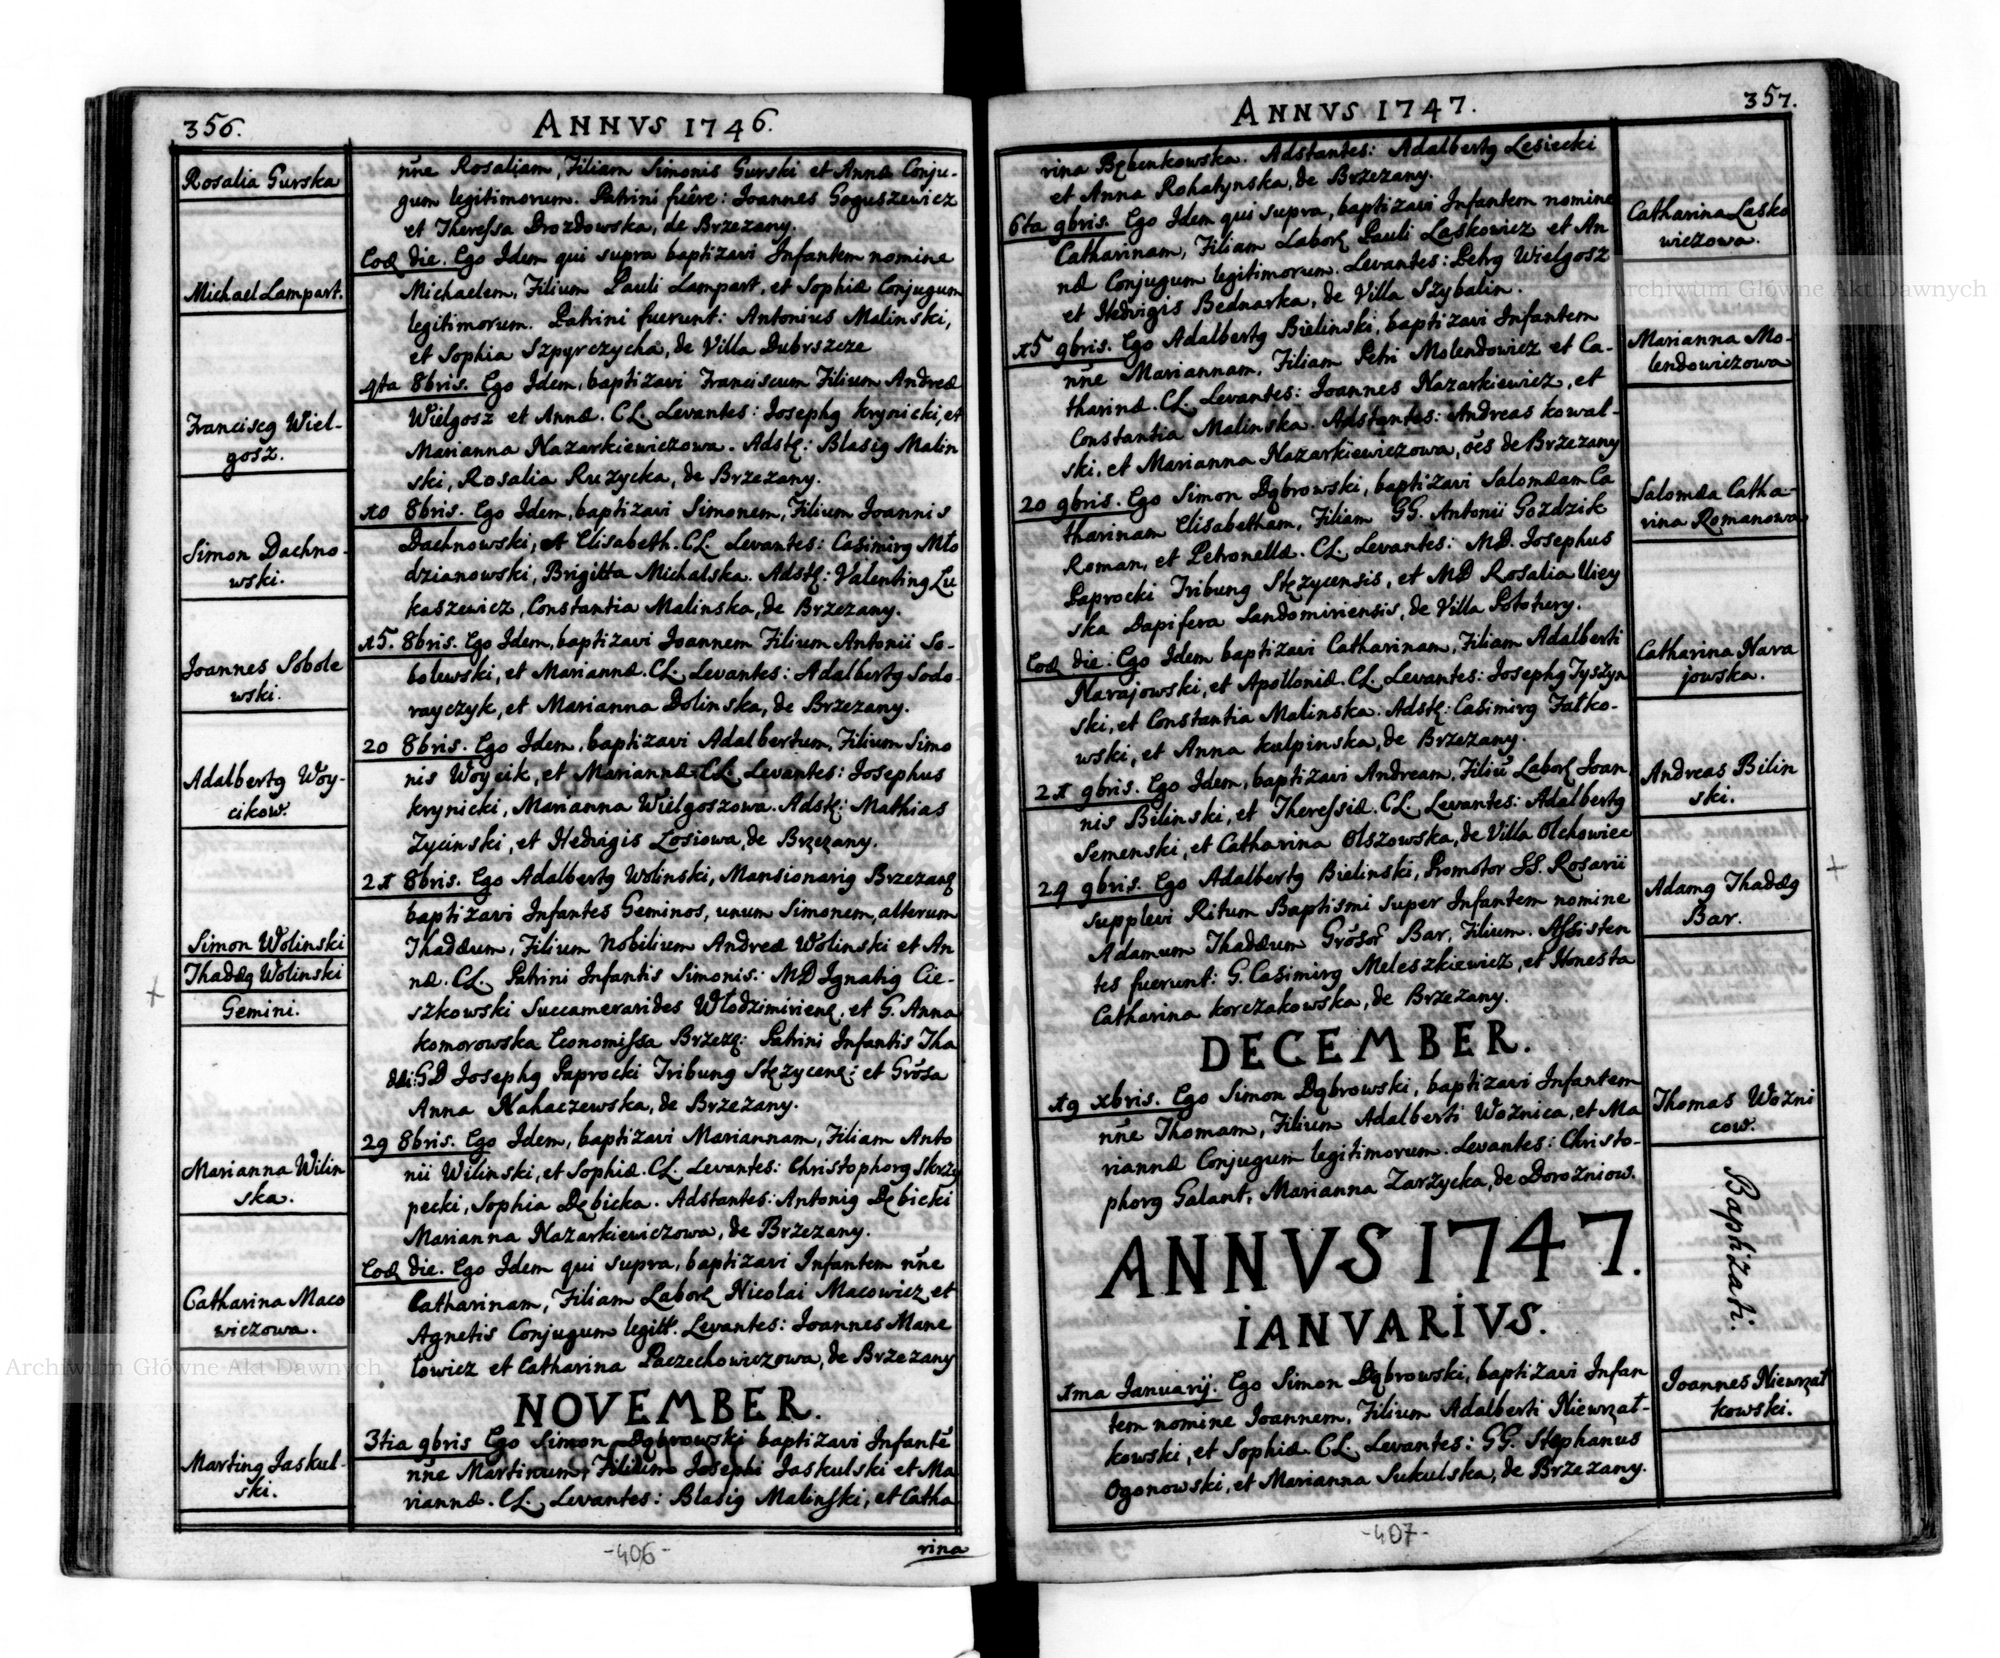 356.
ANNVS 1746.
Rosalia Gurska
Michael Lampart.
Franciscꝯ Wiel-
gosz.
Simon Dachno-
wski.
Joannes Sobole
wski.
Adalbertꝯ Woy-
cikow.
Simon Wolinski
Thadæꝯ Wolinski
Gemini.
Marianna Wilin
ska.
Catharina Maco
wiczowa.
Martinꝯ Jaskul-
ski.
nñe Rosaliam, Filiam Simonis Gurski et Annæ Conju-
gum legitimorum. Patrini fuêre: Joannes Goguszewicz
et Theressa Drozdowska, de Brzezany.
Eoꝺ die. Ego Idem qui supra baptizavi Infantem nomine
Michaelem, Filium Pauli Lampart, et Sophiæ Conjugum
legitimorum. Patrini fuerunt: Antonius Malinski,
et Sophia Szpyrczycha, de Villa Dubrszcze
4ta 8bris. Ego Idem, baptizavi Franciscum Filium Andreæ
Wielgosz et Annæ. CL. Levantes: Josephꝯ Krynicki, et
Marianna Nazarkiewiczowa. Adstꝫ: Blasiꝯ Malin
ski, Rosalia Ruzycka, de Brzezany.
10 8bris. Ego Idem, baptizavi Simonem, Filium Joannis
Dachnowski, et Elisabeth. CL. Levantes: Casimirꝯ Mło
dzianowski, Brigitta Michalska. Adstꝫ: Valentinꝯ Lu
kaszewicz, Constantia Malinska, de Brzezany.
15. 8bris. Ego Idem, baptizavi Joannem Filium Antonii So-
bolewski, et Mariannæ. CL. Levantes: Adalbertꝯ Sodo-
rayczyk, et Marianna Dolinska, de Brzezany.
20 8bris. Ego Idem, baptizavi Adalbertum, Filium Simo
nis Woycik, et Mariannæ CL. Levantes: Josephus
Krynicki, Marianna Wielgoszowa. Adstꝫ: Mathias
Zycinski, et Hedvigis Łosiowa, de Brzezany.
21 8bris. Ego Adalbertꝯ Wolinski, Mansionariꝯ Brzezanꝫ
baptizavi Infantes Geminos, unum Simonem, alterum
Thadæum, Filium Nobilium Andreæ Wolinski et An
næ. CL. Patrini Infantis Simonis: MD Ignatiꝯ Cie-
szkowski Succamerarides Włodzimirienꝫ, et G. Anna
Komorowska Economissa Brzezꝫ: Patrini Infantis Tha
dæi: GD Josephꝯ Paprocki Tribunꝯ Stęzycenꝫ: et Gr̃osa
Anna Nahaczewska, de Brzezany.
29 8bris. Ego Idem, baptizavi Mariannam, Filiam Anto
nii Wilinski, et Sophiæ. CL. Levantes: Christophorꝯ Skrzy
pecki, Sophia Dębicka. Adstantes: Antoniꝯ Dębicki
Marianna Nazarkiewiczowa, de Brzezany.
Eoꝺ die. Ego Idem qui supra, baptizavi Infantem nñe
Catharinam, Filiam Laborꝫ Nicolai Macowicz, et
Agnetis Conjugum legitt. Levantes: Joannes Mane
lowicz et Catharina Paczechowiczowa, de Brzezany
NOVEMBER.
3tia 9bris Ego Simon Dąbrowski baptizavi Infantẽ
nñe Martinum, Filium Josephi Jaskulski et Ma
riannæ. CL. Levantes: Blasiꝯ Malinski, et Catha
rina
-406-
ANNVS 1747.
357.
rina Bębenkowska. Adstantes: Adalbertꝯ Lesiecki
et Anna Rohatynska, de Brzezany.
6ta 9bris. Ego Idem qui supra, baptizavi Infantem nomine
Catharinam, Filiam Laborꝫ Pauli Laskowicz et An
næ Conjugum legitimorum. Levantes: Petrꝯ Wielgosz
et Hedvigis Bednarka, de Villa Szybalin.
15 9bris. Ego Adalbertꝯ Bielinski, baptizavi Infantem
nñe Mariannam, Filiam Petri Molendowicz et Ca-
tharinæ. CL. Levantes: Joannes Nazarkiewicz, et
Constantia Malinska. Adstantes: Andreas Kowal-
ski, et Marianna Nazarkiewiczowa, oẽs de Brzezany
20 9bris. Ego Simon Dąbrowski, baptizavi Salomæam Ca
tharinam Elisabetham, Filiam GG. Antonii Gozdzik
Roman, et Petronellæ. CL. Levantes: MD. Josephus
Paprocki Tribunꝯ Stęzycensis, et MD Rosalia Uiey
ska Dapifera Sandomiriensis, de Villa Potohury.
Eoꝺ die. Ego Idem baptizavi Catharinam, Filiam Adalberti
Narajowski, et Apolloniæ. CL. Levantes: Josephꝯ Tyszyn
ski, et Constantia Malinska. Adstꝫ: Casimirꝯ Fałko-
wski, et Anna Kulpinska, de Brzezany.
21 9bris. Ego Idem, baptizavi Andream, Filiũ Laborꝫ Joan
nis Bilinski, et Theressiæ. CL. Levantes: Adalbertꝯ
Semenski, et Catharina Olszowska, de Villa Olchowiec
29 9bris. Ego Adalbertꝯ Bielinski, Promotor SS. Rosarii
supplevi Ritum Baptismi super Infantem nomine
Adamum Thadæum Gr̃osor̃ Bar, Filium. Assisten
tes fuerunt: G. Casimirꝯ Meleszkiewicz, et Honesta
Catharina Korczakowska, de Brzezany.
DECEMBER.
19 xbris. Ego Simon Dąbrowski, baptizavi Infantem
nñe Thomam, Filium Adalberti Woznica, et Ma
riannæ Conjugum legitimorum. Levantes: Christo-
phorꝯ Galant, Marianna Zarzycka, de Dorozniow.
ANNVS 1747.
IANVARIVS.
1ma Januarij. Ego Simon Dąbrowski, baptizavi Infan
tem nomine Joannem, Filium Adalberti Niewrzat-
kowski, et Sophiæ. CL. Levantes: GG. Stephanus
Ogonowski, et Marianna Sukulska, de Brzezany.
Catharina Lasko
wiczowa.
Marianna Mo-
lendowiczowa
Salomæa Catha-
rina Romanowa
Catharina Nara
jowska.
Andreas Bilin
ski.
Adamꝯ Thadæꝯ
Bar.
Thomas Wozni
cow.
Baptizati.
Joannes Niewrzat
kowski.
-407-
Archiwum Główne Akt Dawnych
Archiwum Główne Akt Dawnych